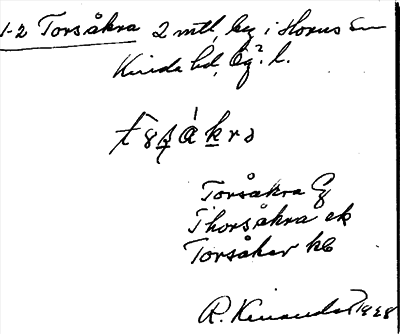 1-2 Torsåkra 2 mtl, by i Horns sn
Kinda hd, Ög. l.
Torsåkra
Thorsåkra ek
Torsåker kb
R. 1928